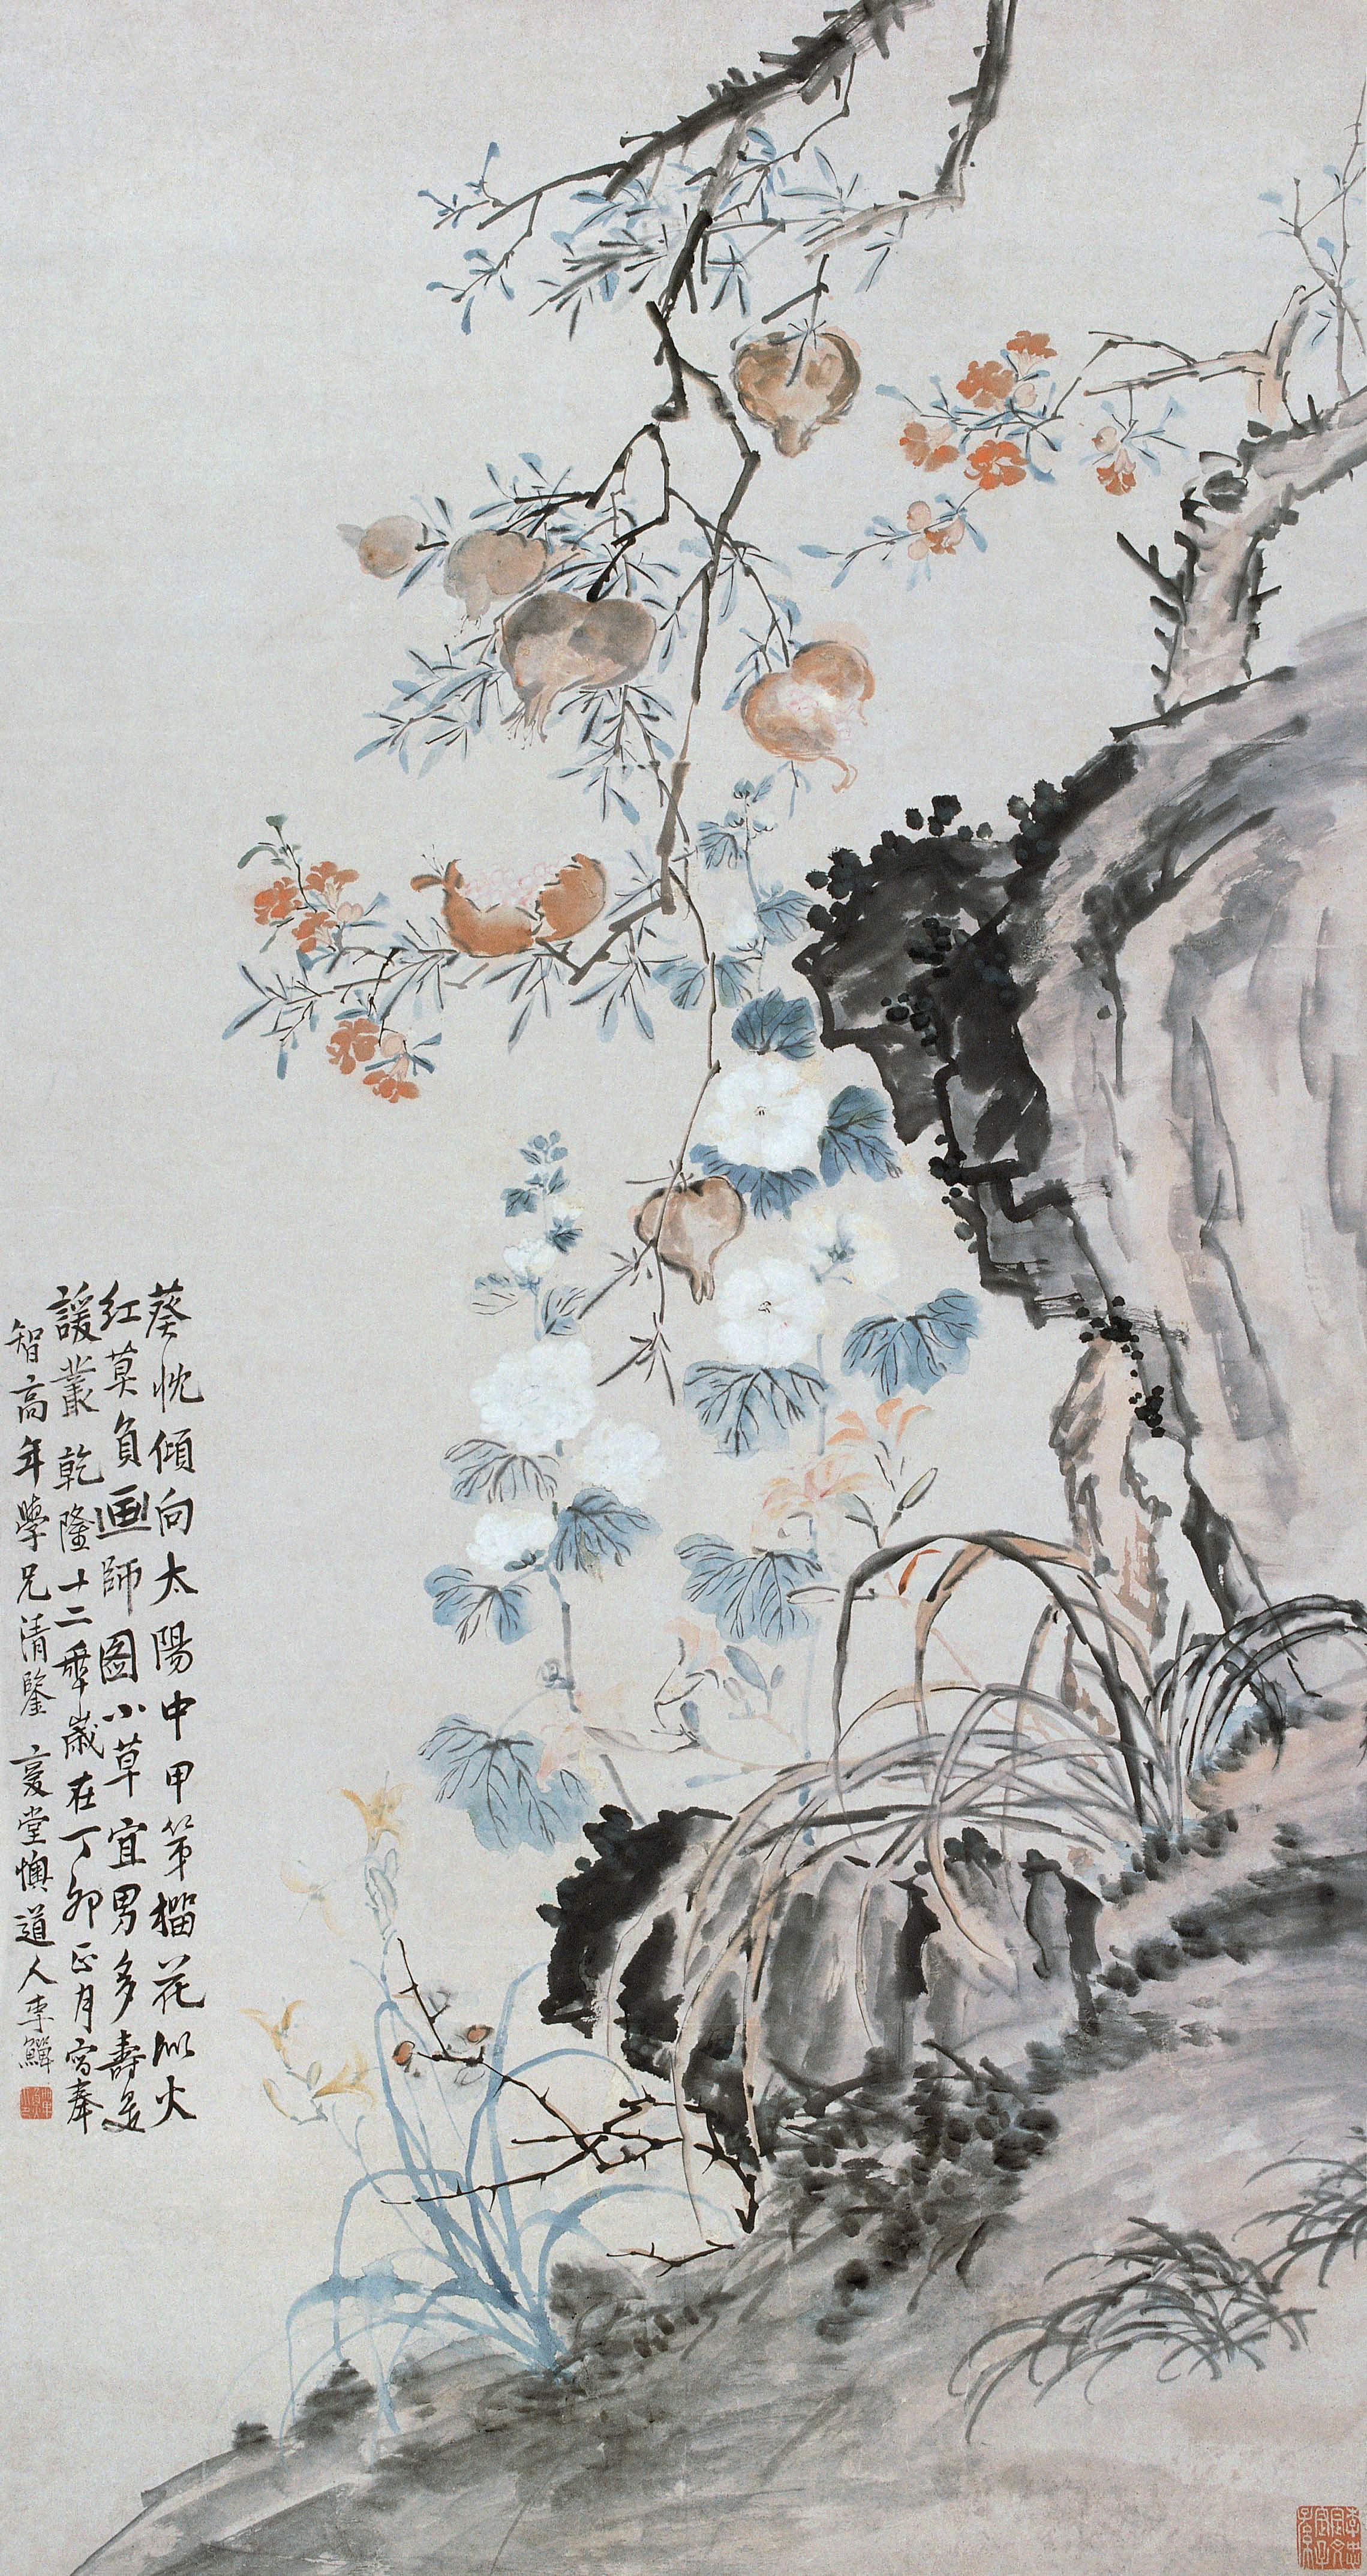 葵忱傾向太陽中甲第榴花似火
紅莫負画師圖小草宜男多壽是
諼叢乾隆十二年歲在丁卯正月寫奉
智高年學兄清鑒 復堂懊道人李鱓